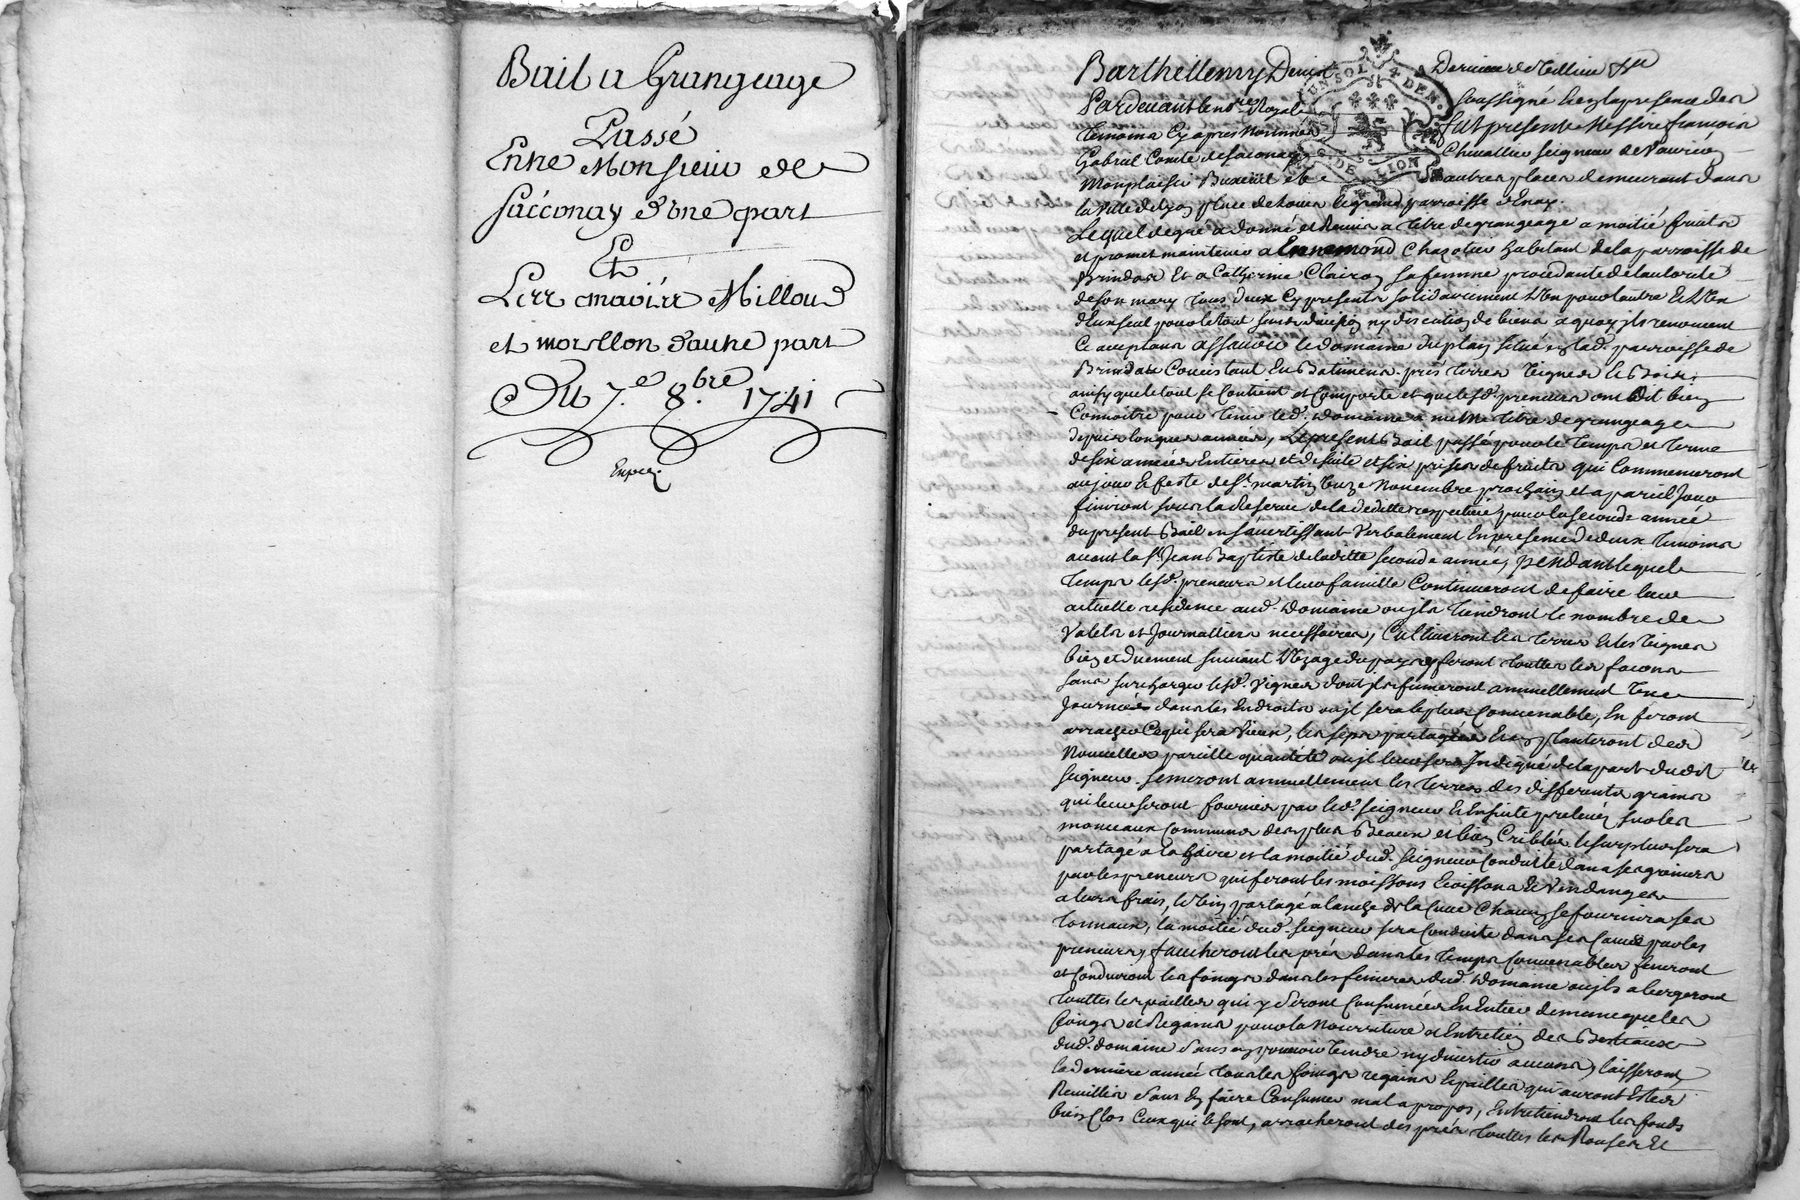 Bail a Grangeage
Passé
Entre Monsieur de
Sacconay d'une part
Et
Milloud
et morellon d'autre part
Du 7.e 8.bre 1741
Barthellemy
Pardevant le no.re Royal soussigné et en la presence des
Temoins cy apres nommés fut present Messire françois
Gabriel Comte de Saconay Chevallier seigneur de
Monplaisir Buxeuil et autres places demeurant dans
la ville de Lyon place de Louis le grand parroisse d'Enay.
Lequel de gré a donné et Remis a titre de grangeage a moitié fruits
et promet maintenir a Ennemond Chazotier habitant de la parroisse de
Brindas Et a Catherine Clairon sa femme procedante de l'autorité
de son mary tous deux cy presents solidairement l'un pour l'autre Et l'un
d'Eux seul pour le tout sans division ny discution de biens a quoy ils renoncent
Ce acceptans assavoir le domaine du plan situé en lad. parroisse de
Brindas Concistant En Batimens prés terres vignes Et Bois
ainsy que le tout se Contient et Comporte et que lesd. preneurs ont dit bien
Connoitre pour tenir led. Domaine a meme titre de grangeage
depuis longues années, Le present Bail passé pour le temps et terme
de six années Entieres et de suite et six prises de fruits qui Commenceront
au jour Et feste de St. martin onze Novembre prochain et a pareil jour
finiront sous la Reserve de la deditte respective pour la seconde année
du present Bail en s'avertissant verbalement En presence de deux temoins
avant la St. Jean Baptiste de laditte seconde année, pendant lequel
temps lesd. preneurs et leur famille Continueront de faire leur
actuelle residence aud. Domaine ou ils tiendront le nombre de
valets et Journalliers necessaires, Cultiveront les terres Et les vignes
bien et duement suivant l'Uzage du pays y feront touttes les façons
sans surcharger lesd. vignes dont ils fumeront annuellement
Journées dans les Endroits ou il sera le plus Convenable, En feront
arracher Ce qui sera vieux, les seps partagés Et en planteront des
Nouvelles pareille quantité ou il leur sera Indiqué de la part dudit
seigneur. semeront annuellement les terres des differents grains
qui leur seront fournis par led. seigneur Et Ensuite prelevés sur les
monceaux Communs des plus Beaux et bien Criblés le surplus sera
partagé a l'aire et la moitié dud. seigneur Conduitte dans ses greniers
par les preneurs qui feront les moissons Et Vendanges
a leurs frais, le vin partagé a l'anche de la Cuve Chacun se fournira ses
tonneaux, la moitié dud. seigneur sera Conduitte dans ses Caves par les
preneurs, faucheront les prés dans les temps Convenables feneront
et Conduiront les foings dans les fenieres dud. Domaine ou ils a bergeront
touttes les pailles qui y seront Consumées En Entier de meme que les
foings et Regains pour la nourriture et Entretien des Bestiaux
dud. domaine sans en pouvoir vendre ny divertir aucuns, laisseront
la derniere année tous les foings regains Et pailles qui auront Esté
Recuillis sans En faire Consumer mal a propos, Entretiendront les fonds
bien Clos Ceux qui le sont, arracheront des prés touttes les Ronses Et